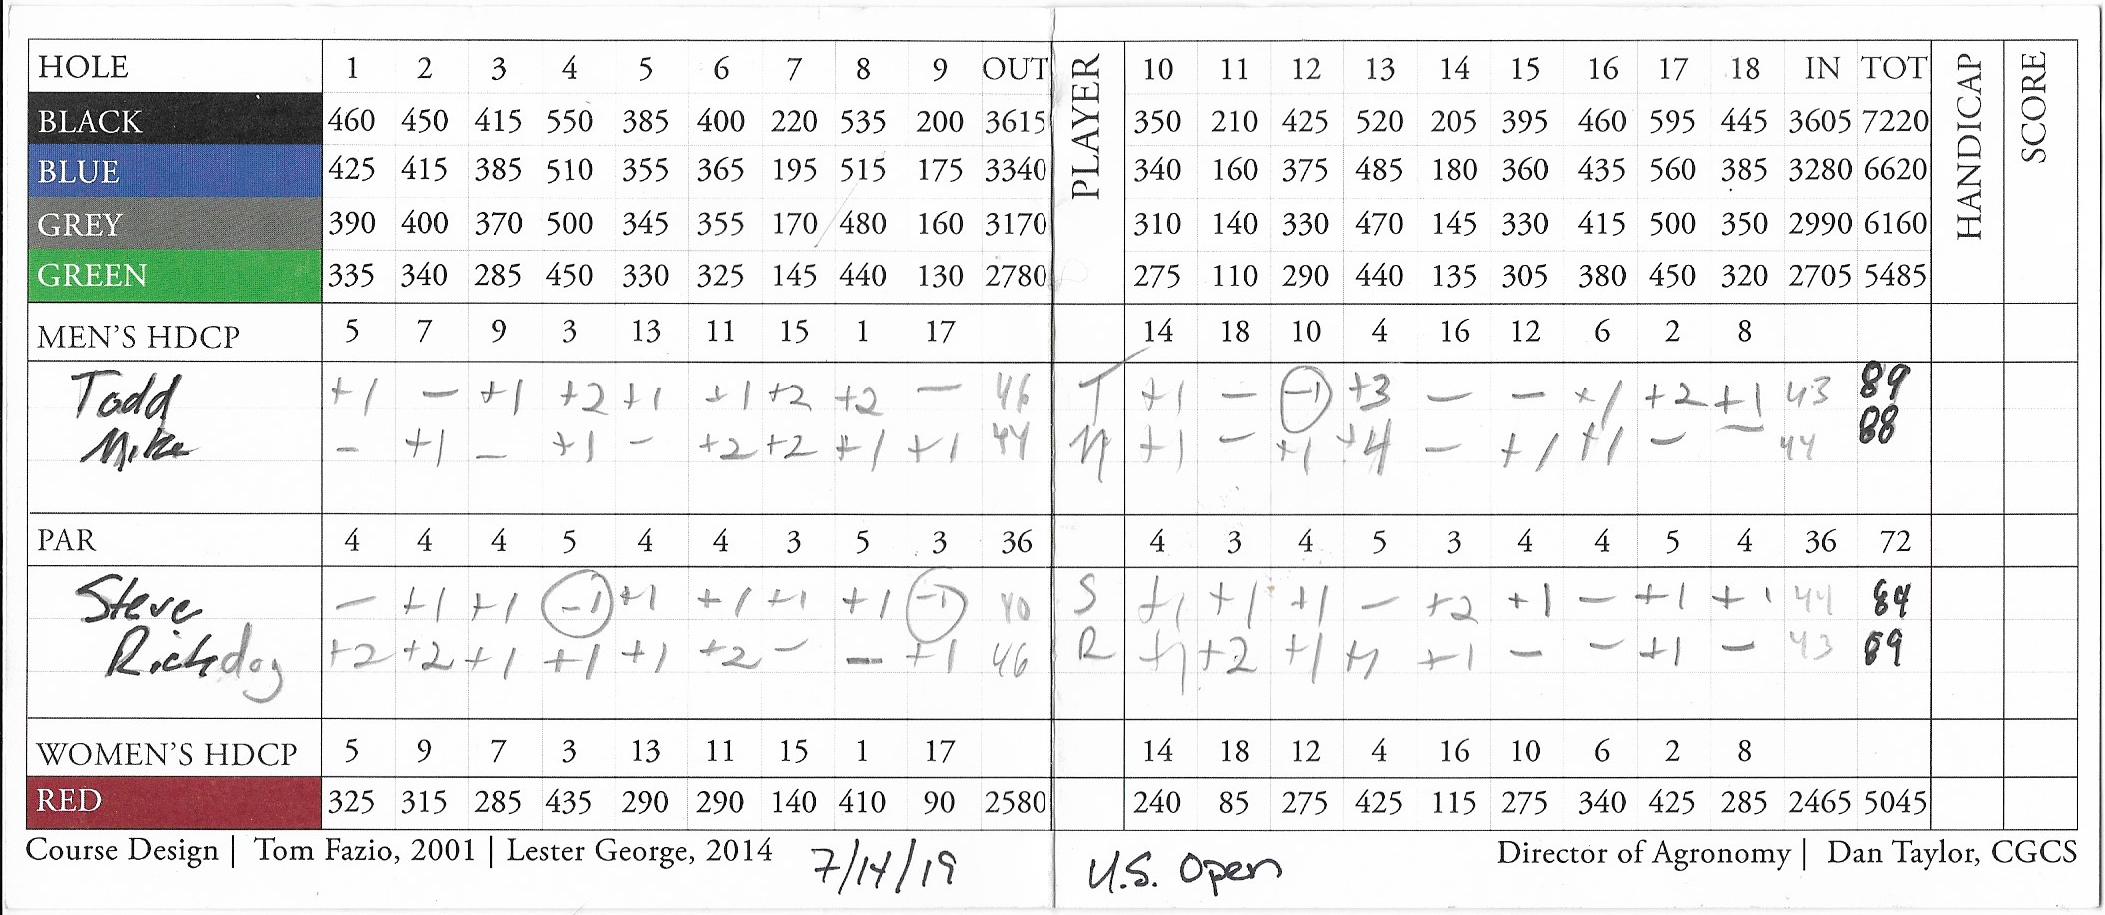 HOLE 1 2 3 4 5 6 7 8 9 OUT PLAYER 10 11 12 13 14 15 16 17 18 IN TOT HANDICAP SCORE
BLACK 460 450 415 550 385 400 220 535 200 3615 350 210 425 520 205 395 460 595 445 3605 7220
BLUE 425 415 385 510 355 365 195 515 175 3340 340 160 375 485 180 360 435 560 385 3280 6620
GREY 390 400 370 500 345 355 170 480 160 3170 310 140 330 470 145 330 415 500 350 2990 6160
GREEN 335 340 285 450 330 325 145 440 130 2780 275 110 290 440 135 305 380 450 320 2705 5485
MEN'S HDCP 5 7 9 3 13 11 15 1 17 14 18 10 4 16 12 6 2 8
Todd +1 - +1 +2 +1 +1 +2 +2 - 46 T +1 - -1 +3 - - +1 +2 +1 43 89
Mike - +1 - +1 - +2 +2 +1 +1 44 M +1 - +1 +4 - +1 +1 - - 44 88
PAR 4 4 4 5 4 4 3 5 3 36 4 3 4 5 3 4 4 5 4 36 72
Steve - +1 +1 -1 +1 +1 +1 +1 -1 40 S +1 +1 +1 - +2 +1 - +1 +1 44 84
Richdog +2 +2 +1 +1 +1 +2 - - +1 46 R +1 +2 +1 +1 +1 - - +1 - 43 89
WOMEN'S HDCP 5 9 7 3 13 11 15 1 17 14 18 12 4 16 10 6 2 8
RED 325 315 285 435 290 290 140 410 90 2580 240 85 275 425 115 275 340 425 285 2465 5045
Course Design | Tom Fazio, 2001 | Lester George, 2014 7/14/19 U.S. Open Director of Agronomy | Dan Taylor, CGCS